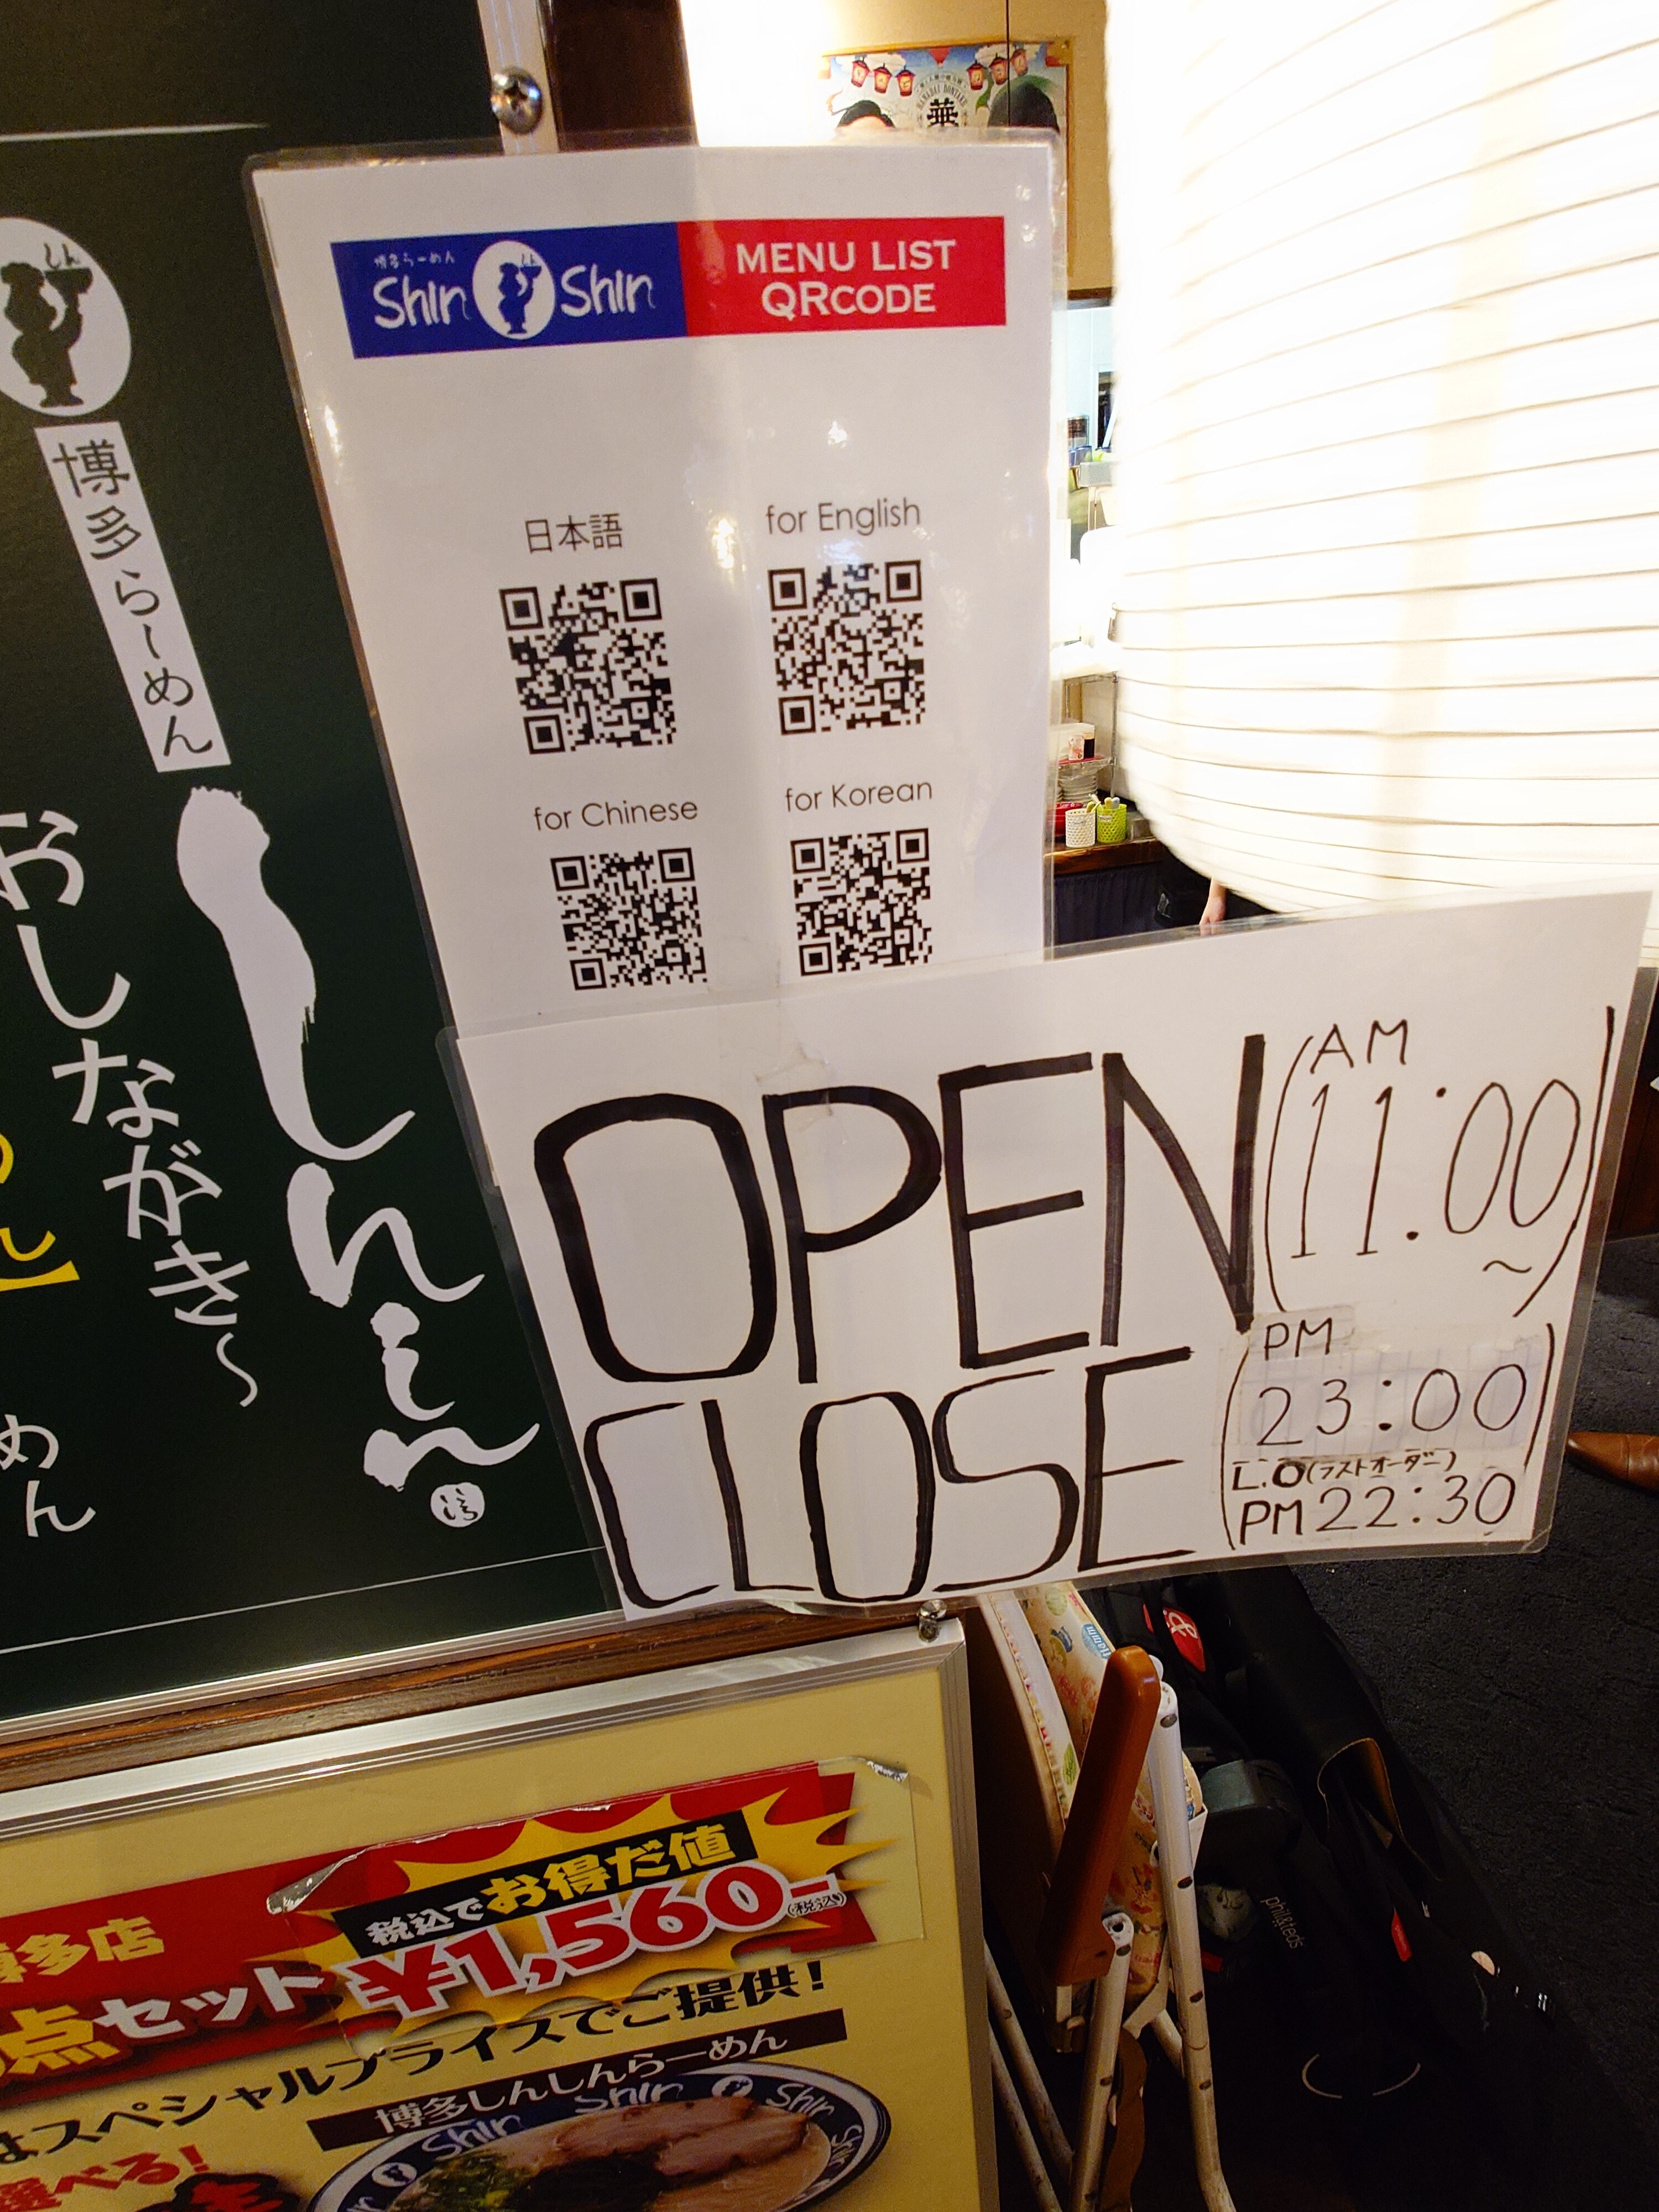 華
博多らーめん
Shin Shin
MENU LIST
QRCODE
日本語
for English
for Chinese
for Korean
しん
博多らーめん
しんしん
おしながき〜
めん
OPEN
(AM
11:00
〜)
CLOSE
(PM
23:00
L.O(ラストオーダー)
PM22:30)
税込でお得だ値
¥1,560-
(税込)
博多店
点セット
はスペシャルプライスでご提供!
博多しんしんらーめん
選べる!
Shin Shin Shin
phil&teds